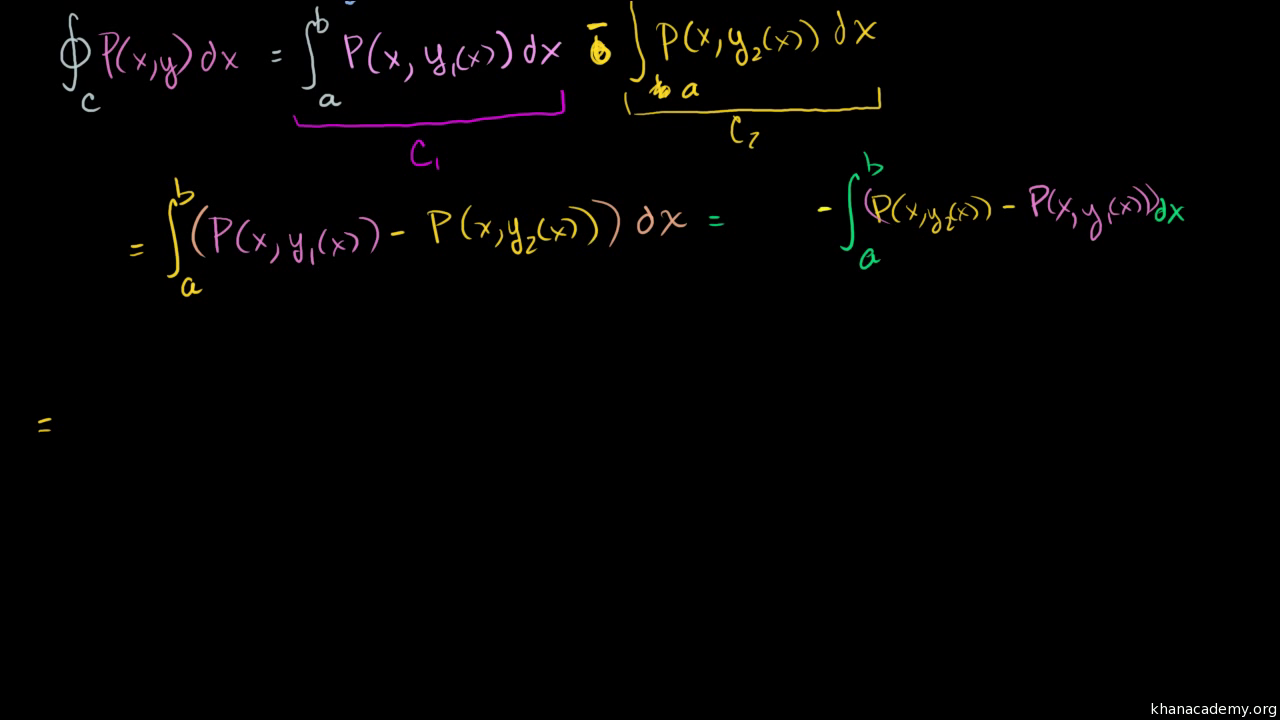 ∮_C P(x,y) dx = ∫_a^b P(x, y₁(x)) dx − ∫_a P(x, y₂(x)) dx
C₁ C₂
= ∫_a^b (P(x, y₁(x)) − P(x, y₂(x))) dx = − ∫_a^b (P(x, y₂(x)) − P(x, y₁(x))) dx
=
khanacademy.org